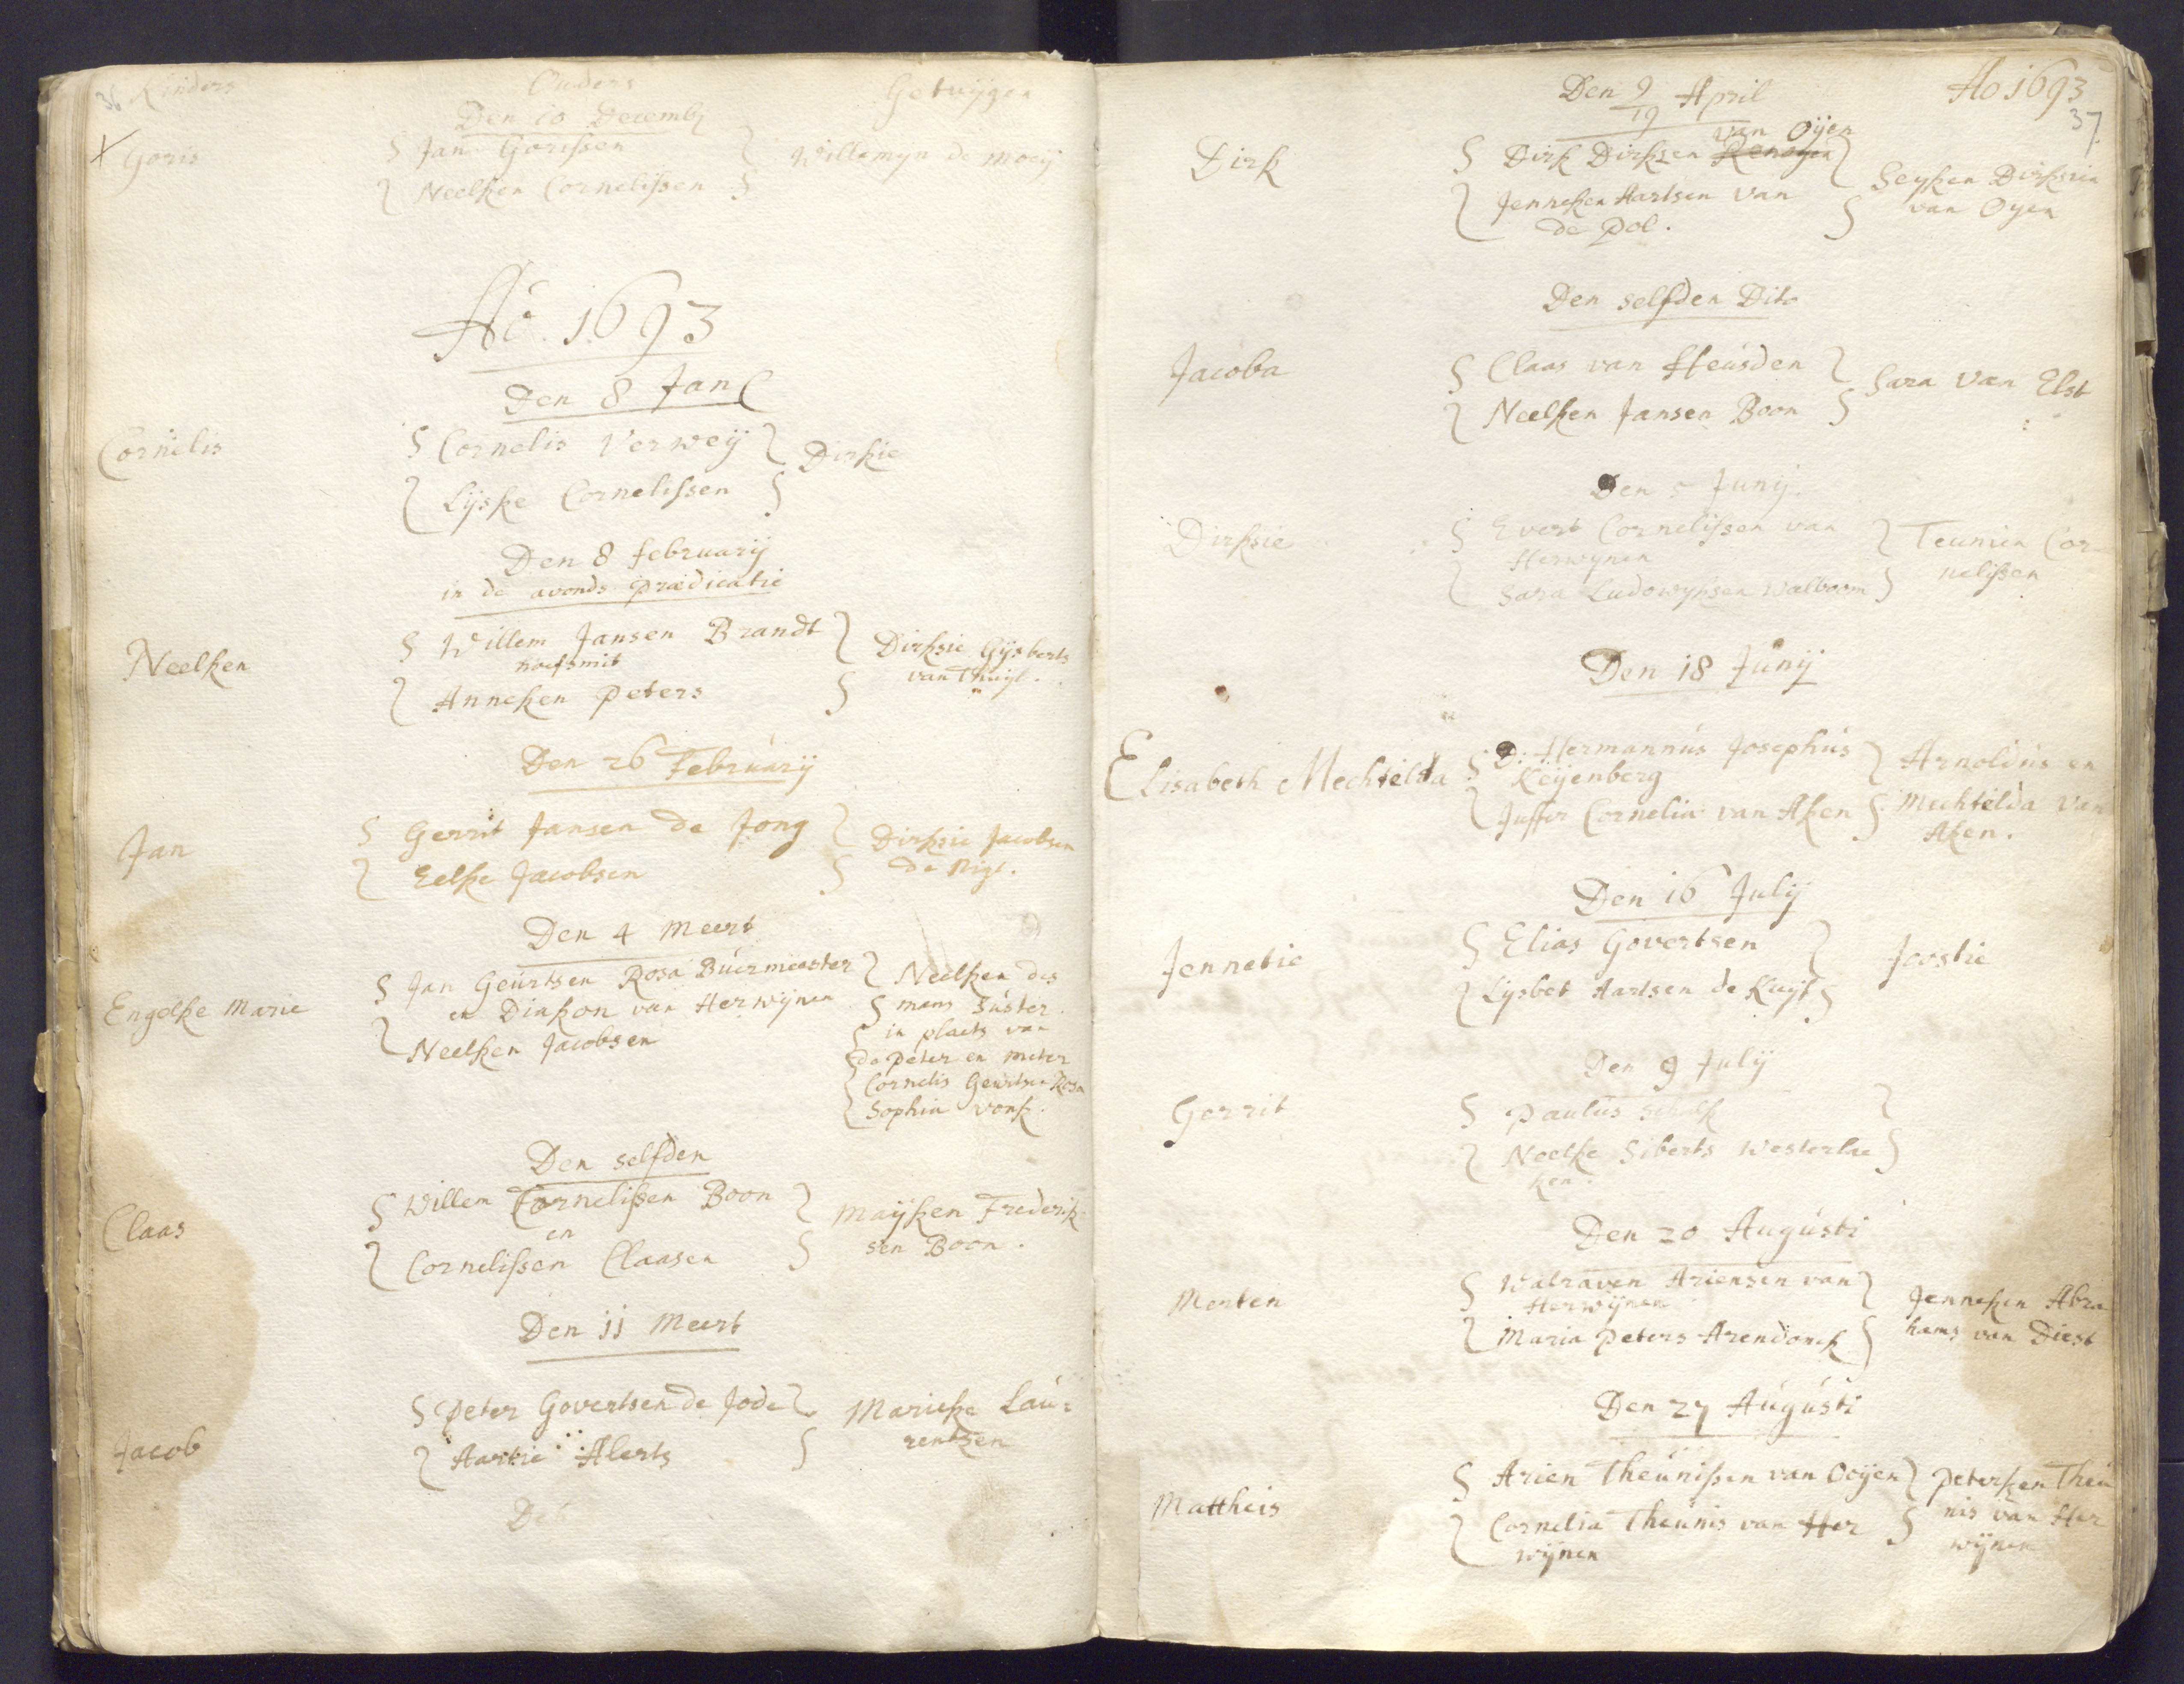 36 Kinders Ouders Getuijgen
Den 10 Decemb
Goris Jan Gorissen Willemyn de Moeij
Neelken Cornelissen
Ao. 1693
Den 8 Jan
Cornelis Cornelis Verweij Dirkie
Lijske Cornelissen
Den 8 februarij
in de avonds praedicatie
Neelken Willem Jansen Brandt Dirksie Gijsberts
hoefsmit van Thuijl.
Anneken Peters
Den 26 Februarij
Jan Gerrit Jansen de Jong Dirksie Jacobsen
Eelke Jacobsen de Nigt.
Den 4 Meert
Engelke Marie Jan Geurtsen Rosa Buermeester Neelken des
en Diakon van Herwijnen mans Suster
Neelken Jacobsen in plaets van
de peter en meter
Cornelis Geurtsen Rosa
Sophia vonk.
Den selfden
Claas Willem Cornelissen Boon Maijken Frederik
en sen Boon.
Cornelissen Claasen
Den 11 Meert
Jacob Peter Govertsen de Jode Marieke Lau:
Aartie Alerts rentsen
Den
Den 9/19 April Ao 1693
37.
van Oijen
Dirk Dirk Dirksen Renogen Seyken Dirksen
Jenneken Aartsen van van Oyen
de Pol.
Den selfden Dito
Jacoba Claas van Heusden Sara van Elst
Neelken Jansen Boon
Den 5 Junij.
Dirksie Evert Cornelissen van Teunien Cor
Herwynen nelissen
Sara Ludowyksen Walboom
Den 18 Junij
Elisabeth Mechtelda D. Hermannus Josephus Arnoldus en
Keijenberg Mechtelda van
Juffer Cornelia van Aken Aken.
Den 16 Julij
Jennetie Elias Govertsen Joostie
Lijsbet Aartsen de Kuijt
Den 9 Julij
Gerrit Paulus
Neelke Siberts Westerlae
ken.
Den 20 Augusti
Merten Walraven Ariensen van Jenneken Abra
Herwijnen hams van Diest
Maria Peters Arendonck
Den 27 Augusti
Mattheis Arien Theunissen van Ooijen Peterken Theu
Cornelia Theunis van Her nis van Her
wijnen wijnen